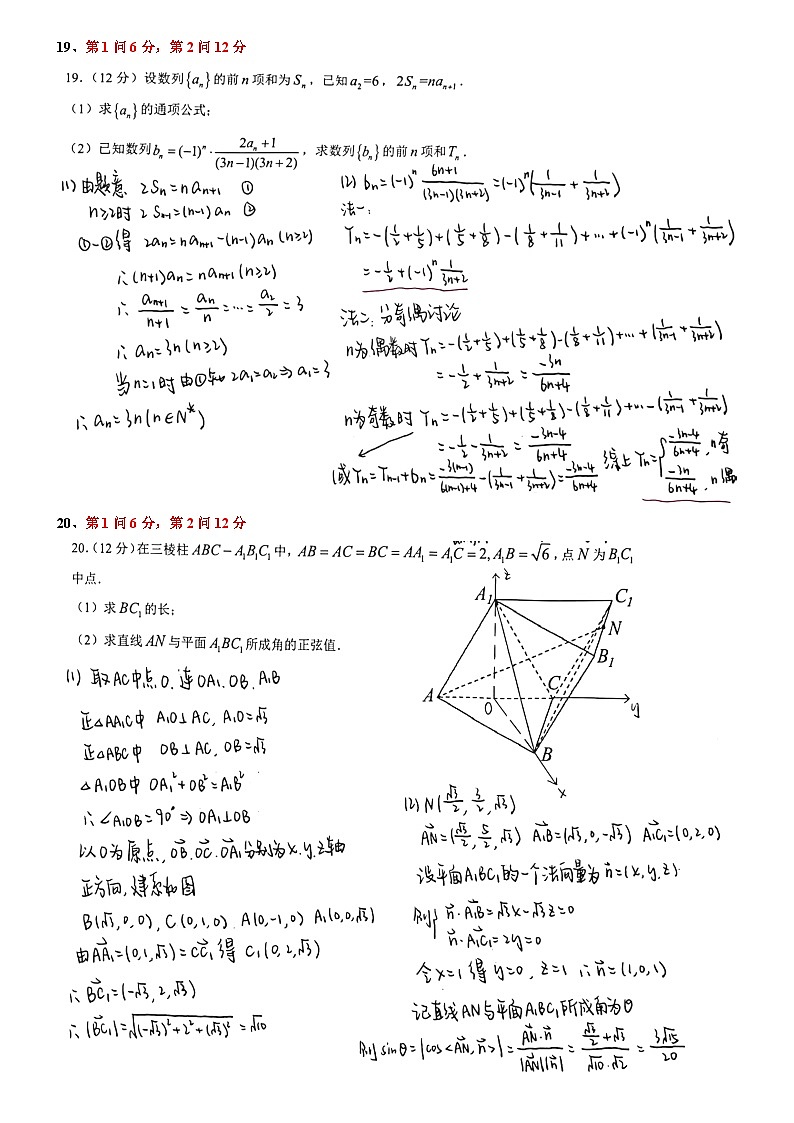 19、第 1 问 6 分，第 2 问 12 分
19.（12 分）设数列{aₙ}的前 n 项和为 Sₙ，已知 a₂=6，2Sₙ=naₙ₊₁．
（1）求{aₙ}的通项公式；
（2）已知数列 bₙ=(−1)ⁿ·(2aₙ+1)/((3n−1)(3n+2))，求数列{bₙ}的前 n 项和 Tₙ．
(1) 由题意 2Sₙ=naₙ₊₁ ①
n≥2时 2Sₙ₋₁=(n-1)aₙ ②
①-②得 2aₙ=naₙ₊₁-(n-1)aₙ (n≥2)
∴(n+1)aₙ=naₙ₊₁(n≥2)
∴ aₙ₊₁/(n+1) = aₙ/n = … = a₂/2 = 3
∴ aₙ=3n(n≥2)
当n=1时 由①知 2a₁=a₂⇒a₁=3
∴ aₙ=3n(n∈N*)
(2) bₙ=(-1)ⁿ (6n+1)/((3n-1)(3n+2)) =(-1)ⁿ(1/(3n-1) + 1/(3n+2))
法一:
Tₙ=-(1/2+1/5)+(1/5+1/8)-(1/8+1/11)+…+(-1)ⁿ(1/(3n-1)+1/(3n+2))
=-1/2+(-1)ⁿ 1/(3n+2)
法二: 分奇偶讨论
n为偶数时 Tₙ=-(1/2+1/5)+(1/5+1/8)-(1/8+1/11)+…+(1/(3n-1)+1/(3n+2))
=-1/2+1/(3n+2) = -3n/(6n+4)
n为奇数时 Tₙ=-(1/2+1/5)+(1/5+1/8)-(1/8+1/11)+…-(1/(3n-1)+1/(3n+2))
=-1/2-1/(3n+2) = (-3n-4)/(6n+4)
(或Tₙ=Tₙ₋₁+bₙ=-3(n-1)/(6(n-1)+4)-(1/(3n-1)+1/(3n+2))=(-3n-4)/(6n+4) 综上 Tₙ={(-3n-4)/(6n+4), n奇
-3n/(6n+4), n偶
20、第 1 问 6 分，第 2 问 12 分
20.（12 分）在三棱柱 ABC−A₁B₁C₁ 中，AB=AC=BC=AA₁=A₁C=2, A₁B=√6，点 N 为 B₁C₁
中点．
（1）求 BC₁ 的长；
（2）求直线 AN 与平面 A₁BC₁ 所成角的正弦值．
z
A₁
C₁
N
B₁
A
O
C
y
B
x
(1) 取AC中点O. 连OA₁. OB. A₁B
正△AA₁C中 A₁O⊥AC, A₁O=√3
正△ABC中 OB⊥AC, OB=√3
△A₁OB中 OA₁²+OB²=A₁B²
∴∠A₁OB=90°⇒OA₁⊥OB
以O为原点, OB⃗.OC⃗.OA₁⃗分别为x.y.z轴
正方向,建系如图
B(√3,0,0), C(0,1,0). A(0,-1,0) A₁(0,0,√3)
由AA₁⃗=(0,1,√3)=CC₁⃗得 C₁(0,2,√3)
∴ BC₁⃗=(-√3,2,√3)
∴ |BC₁⃗|=√((-√3)²+2²+(√3)²) =√10
(2) N(√3/2, 3/2, √3)
AN⃗=(√3/2, 5/2, √3) A₁B⃗=(√3,0,-√3) A₁C₁⃗=(0,2,0)
设平面A₁BC₁的一个法向量为n⃗=(x,y,z).
则{n⃗·A₁B⃗=√3x-√3z=0
n⃗·A₁C₁⃗=2y=0
令x=1得 y=0, z=1 ∴n⃗=(1,0,1)
记直线AN与平面A₁BC₁所成角为θ
则sinθ=|cos<AN⃗,n⃗>|=AN⃗·n⃗/(|AN⃗||n⃗|)=(√3/2+√3)/(√10·√2)=3√15/20